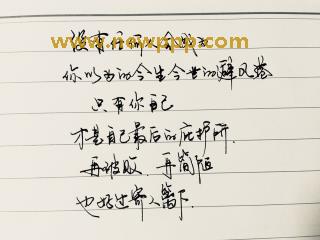 没有任何人会成为
www.newppp.com
你以为的今生今世的避风港
只有你自己
才是自己最后的庇护所.
再破败、再简陋
也好过寄人篱下.